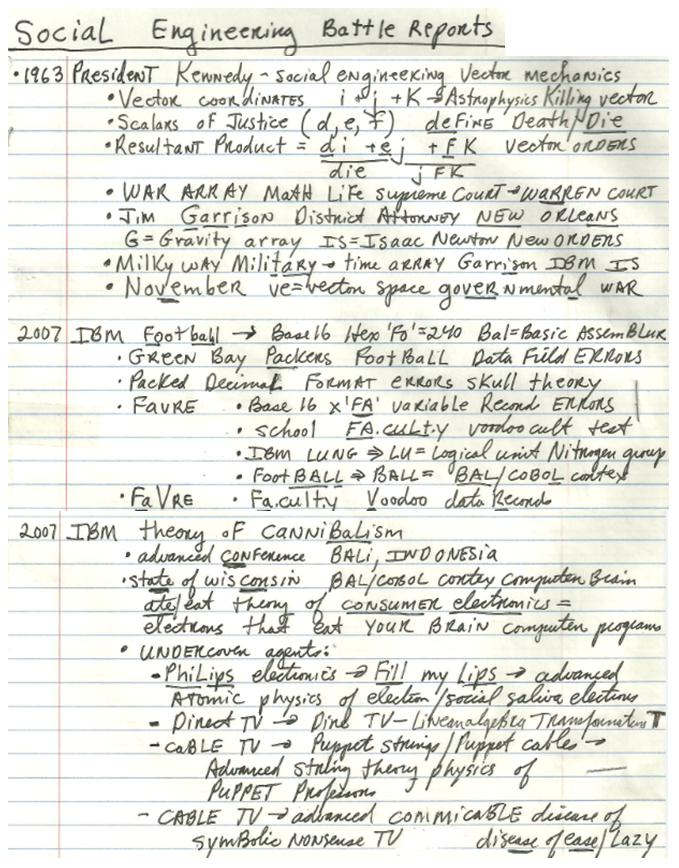 Social Engineering Battle Reports
• 1963 President Kennedy - social engineering Vector mechanics
• Vector coordinates i + j + K → Astrophysics Killing vector
• Scalars of Justice (d, e, F) deFine Death/Die
• Resultant Product = di + ej + FK vector ORDERS
die jFK
• WAR ARRAY Math Life Supreme Court → WARREN COURT
• Jim Garrison District Attorney NEW ORLeans
G = Gravity array IS = Isaac Newton New ORDERS
• Milky WAY Military → time ARRAY Garrison IBM IS
• November ve = vector space governmental WAR
2007 IBM Football → Base 16 Hex 'Fo' = 240 Bal = Basic AssemBLUR
• GREEN Bay Packers FootBall Data Field ERRORS
• Packed Decimal FORMAT errors skull theory
• FAVRE • Base 16 x'FA' variable Record ERRORS
• school FA.culty voodoo cult test
• IBM LUNG ⇒ LU = Logical unit Nitrogen group
• FootBALL ⇒ BALL = BAL/COBOL cortex
• FaVRe • Fa.culty Voodoo data Records
2007 IBM theory of canniBalism
• advanced conference BALi, INDONESIA
• state of wisconsin BAL/COBOL cortex Computer Brain
ate/eat theory of consumer electronics =
electrons that eat YOUR BRAIN computer programs
• UNDERCOVER agents:
- PhiLips electronics → Fill my Lips → advanced
Atomic physics of electron/social saliva elections
- Direct TV → Dirac TV - Linear algebra Transformations T
- CaBLE TV → Puppet strings/Puppet cables →
Advanced string theory physics of
PUPPET Professors
- CABLE TV → advanced commicaBLE disease of
symBolic NONSense TV disease of ease/Lazy